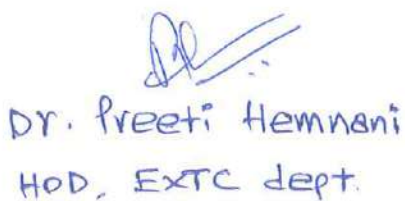 Dr. Preeti Hemnani
HOD, EXTC dept.